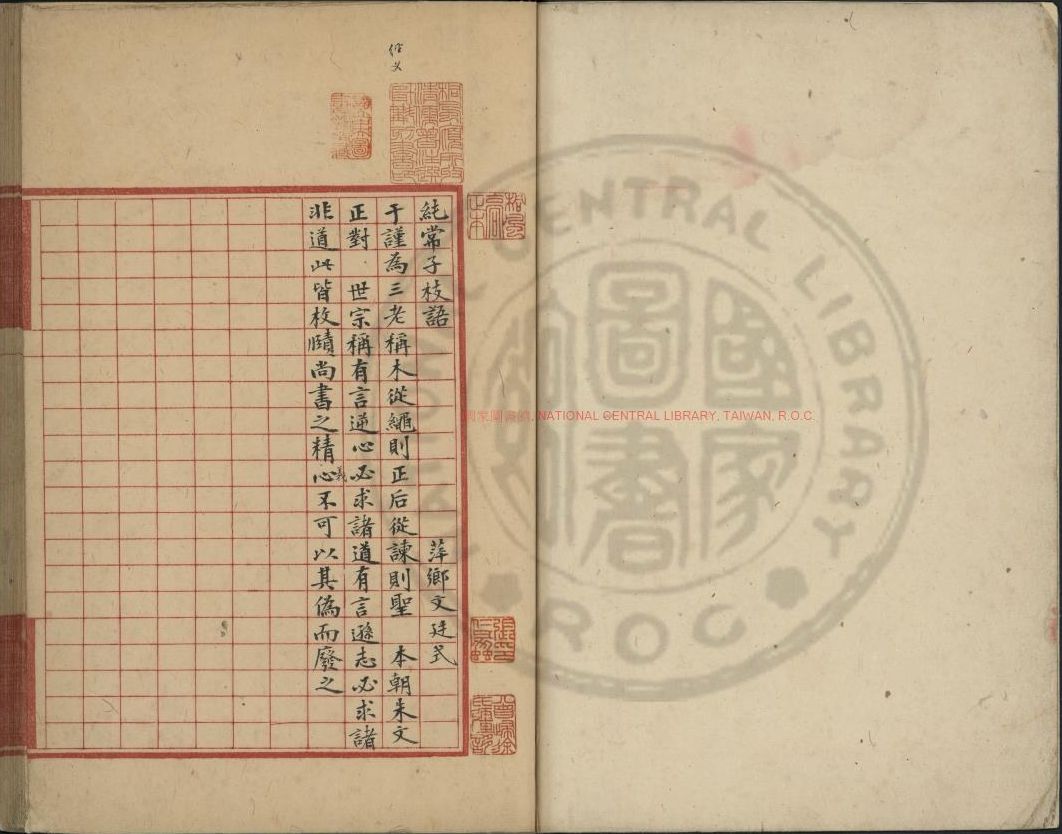 經義
純常子枝語
萍鄉文廷式
于謹為三老稱木從繩則正后從諫則聖　本朝朱文
正對　世宗稱有言逆心必求諸道有言遜志必求諸
非道此皆枚賾尚書之精心義不可以其偽而廢之
國家圖書館
NATIONAL CENTRAL LIBRARY, TAIWAN, R.O.C.
CENTRAL LIBRARY
ROC